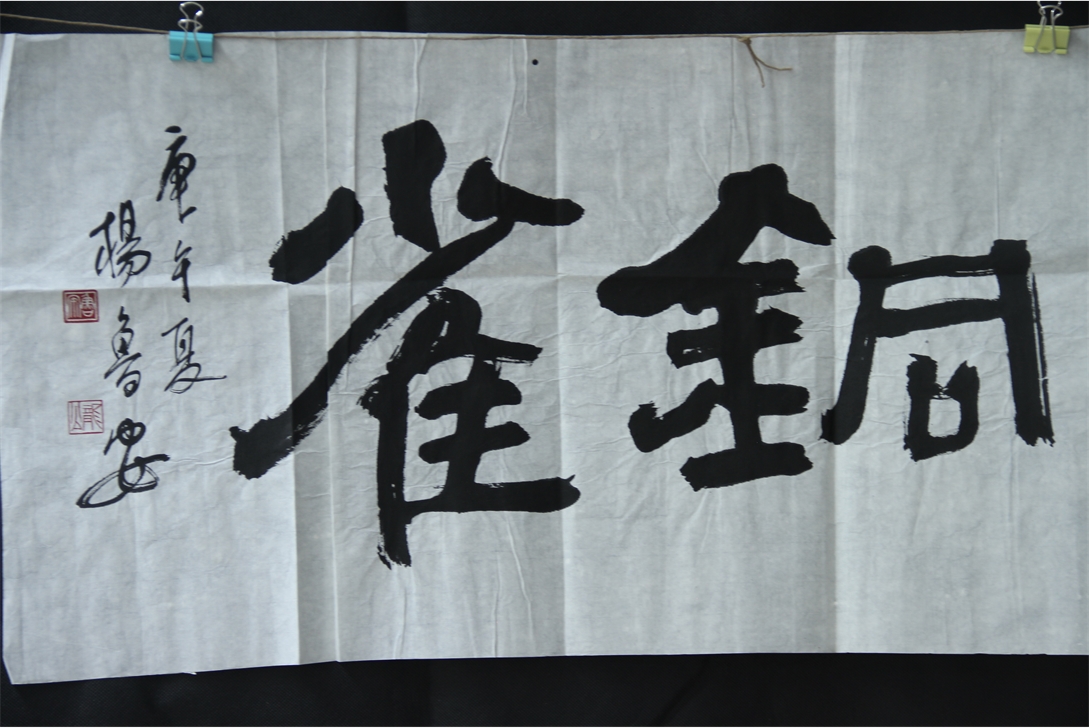 銅雀
庚午夏
楊魯安